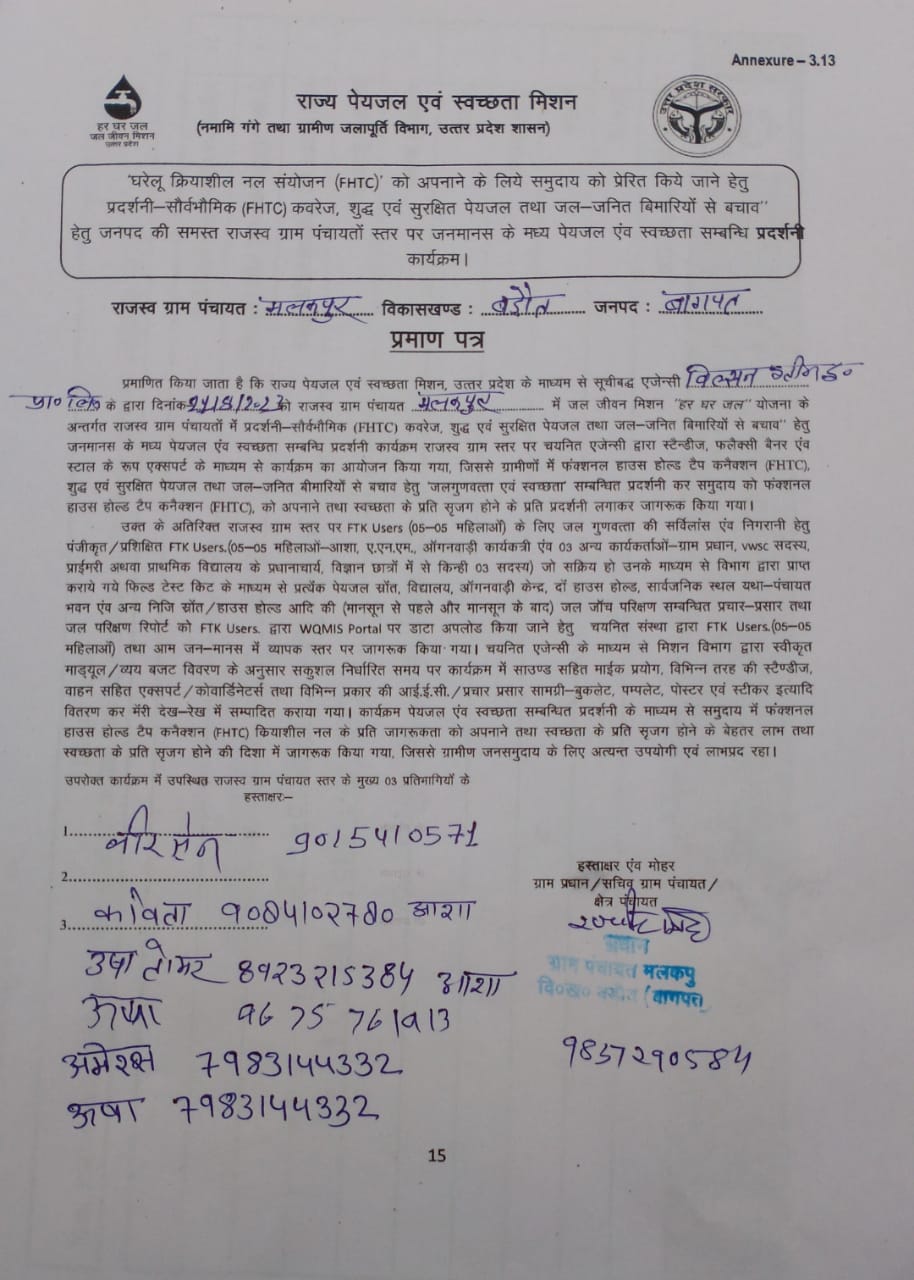 Annexure – 3.13
हर घर जल
जल जीवन मिशन
उत्तर प्रदेश
राज्य पेयजल एवं स्वच्छता मिशन
(नमामि गंगे तथा ग्रामीण जलापूर्ति विभाग, उत्तर प्रदेश शासन)
उत्तर प्रदेश सरकार
'घरेलू क्रियाशील नल संयोजन (FHTC)' को अपनाने के लिये समुदाय को प्रेरित किये जाने हेतु
प्रदर्शनी–सौर्वभौमिक (FHTC) कवरेज, शुद्ध एवं सुरक्षित पेयजल तथा जल–जनित बिमारियों से बचाव"
हेतु जनपद की समस्त राजस्व ग्राम पंचायतों स्तर पर जनमानस के मध्य पेयजल एंव स्वच्छता सम्बन्धि प्रदर्शनी
कार्यक्रम।
राजस्व ग्राम पंचायत : मलकपुर विकासखण्ड : बड़ौत जनपद : बागपत
प्रमाण पत्र
प्रमाणित किया जाता है कि राज्य पेयजल एवं स्वच्छता मिशन, उत्तर प्रदेश के माध्यम से सूचीबद्ध एजेन्सी विल्सन
प्रा० लि० के द्वारा दिनांक को राजस्व ग्राम पंचायत मलकपुर में जल जीवन मिशन "हर घर जल" योजना के
अन्तर्गत राजस्व ग्राम पंचायतों में प्रदर्शनी–सौर्वभौमिक (FHTC) कवरेज, शुद्ध एवं सुरक्षित पेयजल तथा जल–जनित बिमारियों से बचाव" हेतु
जनमानस के मध्य पेयजल एंव स्वच्छता सम्बन्धि प्रदर्शनी कार्यक्रम राजस्व ग्राम स्तर पर चयनित एजेन्सी द्वारा स्टेन्डीज, फलैक्सी बैनर एंव
स्टाल के रूप एक्सपर्ट के माध्यम से कार्यक्रम का आयोजन किया गया, जिससे ग्रामीणों में फंक्शनल हाउस होल्ड टैप कनैक्शन (FHTC),
शुद्ध एवं सुरक्षित पेयजल तथा जल–जनित बीमारियों से बचाव हेतु 'जलगुणवत्ता एवं स्वच्छता' सम्बन्धित प्रदर्शनी कर समुदाय को फंक्शनल
हाउस होल्ड टैप कनैक्शन (FHTC), को अपनाने तथा स्वच्छता के प्रति सृजग होने के प्रति प्रदर्शनी लगाकर जागरूक किया गया।
उक्त के अतिरिक्त राजस्व ग्राम स्तर पर FTK Users (05–05 महिलाओं) के लिए जल गुणवत्ता की सर्विलांस एंव निगरानी हेतु
पंजीकृत/प्रशिक्षित FTK Users.(05–05 महिलाओं–आशा, ए.एन.एम., ऑगनवाड़ी कार्यकत्री एंव 03 अन्य कार्यकर्ताओं–ग्राम प्रधान, vwsc सदस्य,
प्राईमरी अथवा प्राथमिक विद्यालय के प्रधानाचार्य, विज्ञान छात्रों में से किन्ही 03 सदस्य) जो सक्रिय हो उनके माध्यम से विभाग द्वारा प्राप्त
कराये गये फिल्ड टेस्ट किट के माध्यम से प्रर्त्येक पेयजल स्रोंत, विद्यालय, ऑगनवाड़ी केन्द्र, दों हाउस होल्ड, सार्वजनिक स्थल यथा–पंचायत
भवन एंव अन्य निजि स्रोंत/हाउस होल्ड आदि की (मानसून से पहले और मानसून के बाद) जल जॉच परिक्षण सम्बन्धित प्रचार–प्रसार तथा
जल परिक्षण रिपोर्ट को FTK Users. द्वारा WQMIS Portal पर डाटा अपलोड किया जाने हेतु चयनित संस्था द्वारा FTK Users.(05–05
महिलाओं) तथा आम जन–मानस में व्यापक स्तर पर जागरूक किया गया। चयनित एजेन्सी के माध्यम से मिशन विभाग द्वारा स्वीकृत
माड्यूल/व्यय बजट विवरण के अनुसार सकुशल निर्धारित समय पर कार्यक्रम में साउण्ड सहित माईक प्रयोग, विभिन्न तरह की स्टैण्डीज,
वाहन सहित एक्सपर्ट/कोवार्डिनेटर्स तथा विभिन्न प्रकार की आई.ई.सी./प्रचार प्रसार सामग्री–बुकलेट, पम्पलेट, पोस्टर एवं स्टीकर इत्यादि
वितरण कर मेंरी देख–रेख में सम्पादित कराया गया। कार्यक्रम पेयजल एंव स्वच्छता सम्बन्धित प्रदर्शनी के माध्यम से समुदाय में फंक्शनल
हाउस होल्ड टैप कनैक्शन (FHTC) कियाशील नल के प्रति जागरूकता को अपनाने तथा स्वच्छता के प्रति सृजग होने के बेहतर लाभ तथा
स्वच्छता के प्रति सृजग होने की दिशा में जागरूक किया गया, जिससे ग्रामीण जनसमुदाय के लिए अत्यन्त उपयोगी एवं लाभप्रद रहा।
उपरोक्त कार्यक्रम में उपस्थित राजस्व ग्राम पंचायत स्तर के मुख्य 03 प्रतिभागियों के
हस्ताक्षरः–
1. वीरसेन 9015410571
2.
3. कविता 9084102780 आशा
उषा तोमर 8923215384 आशा
ऊषा 9675761913
7983144332
ऊषा 7983144332
हस्ताक्षर एंव मोहर
ग्राम प्रधान/सचिव ग्राम पंचायत/
क्षेत्र पंचायत
प्रधान
ग्राम पंचायत मलकपु
वि०ख० बड़ौत (बागपत)
9837290584
15